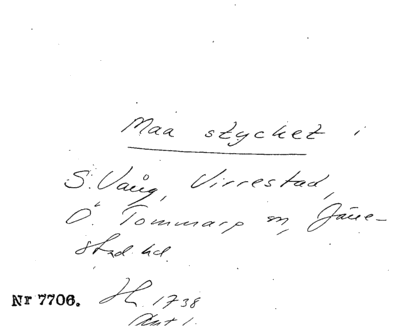 Maa stycket i
S. Vång, Virrestad,
Ö. Tommarp m, Järre-
stad hd.
Nr 7706. H. 1738